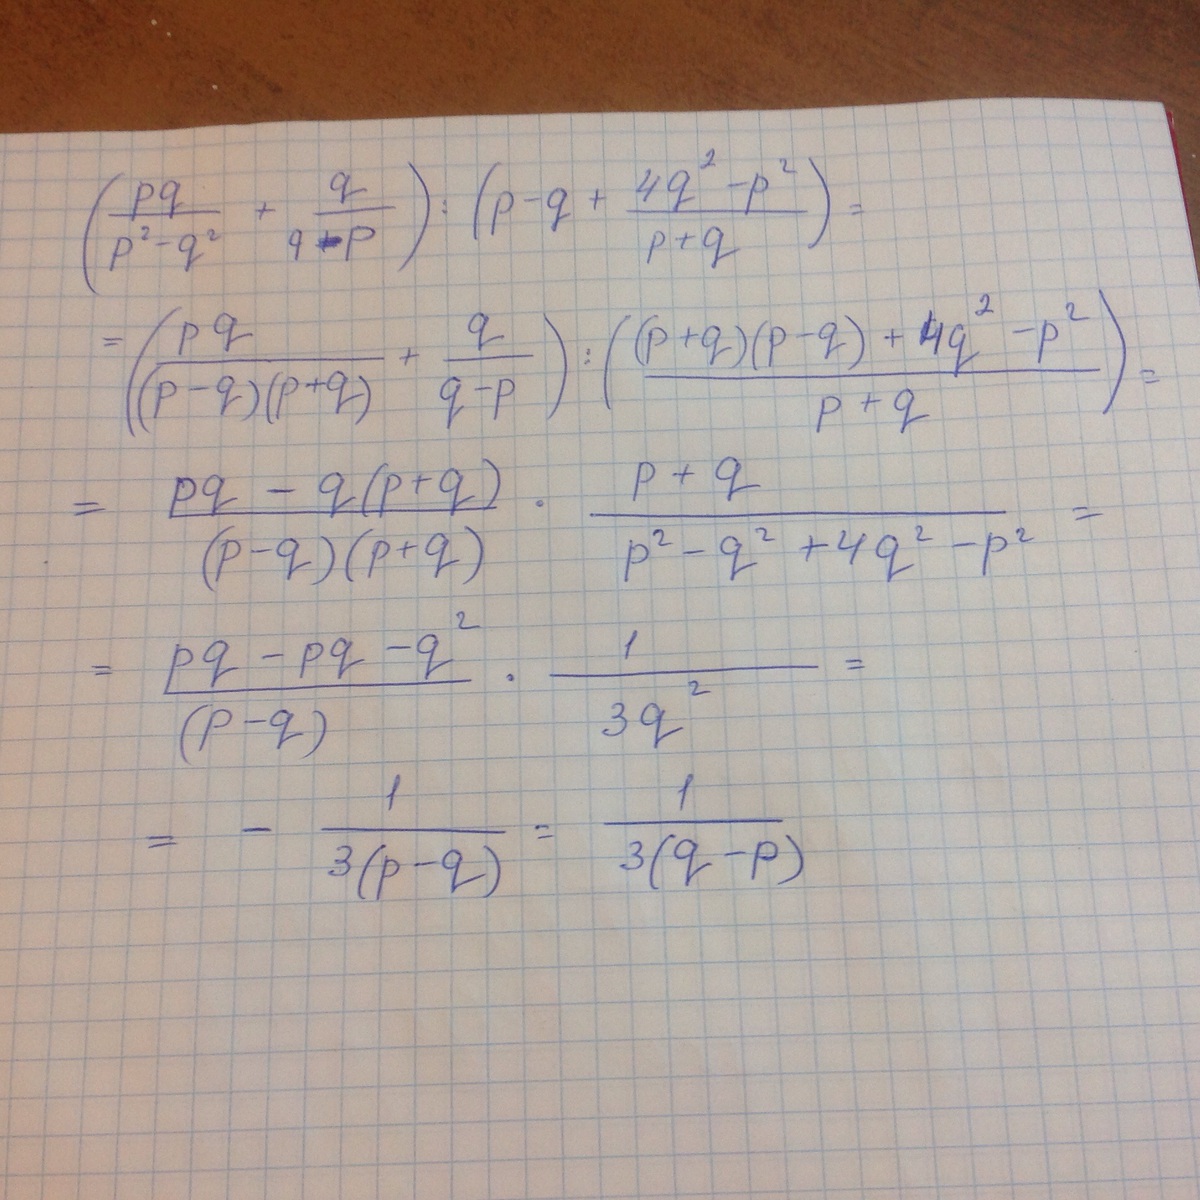 (pq/(p² - q²) + q/(q - p)) : (p - q + (4q² - p²)/(p + q)) =
= (pq/((p - q)(p + q)) + q/(q - p)) : (((p + q)(p - q) + 4q² - p²)/(p + q)) =
= (pq - q(p + q))/((p - q)(p + q)) · (p + q)/(p² - q² + 4q² - p²) =
= (pq - pq - q²)/(p - q) · 1/(3q²) =
= - 1/(3(p - q)) = 1/(3(q - p))